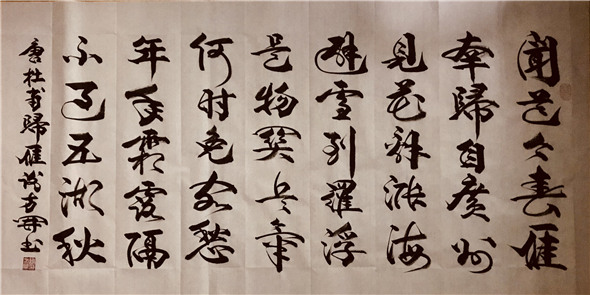 聞道今春雁
南歸自廣州
見花辭漲海
避雪到羅浮
是物關兵氣
何时免客愁
年年霜露隔
不過五湖秋
唐杜甫歸雁詩方書